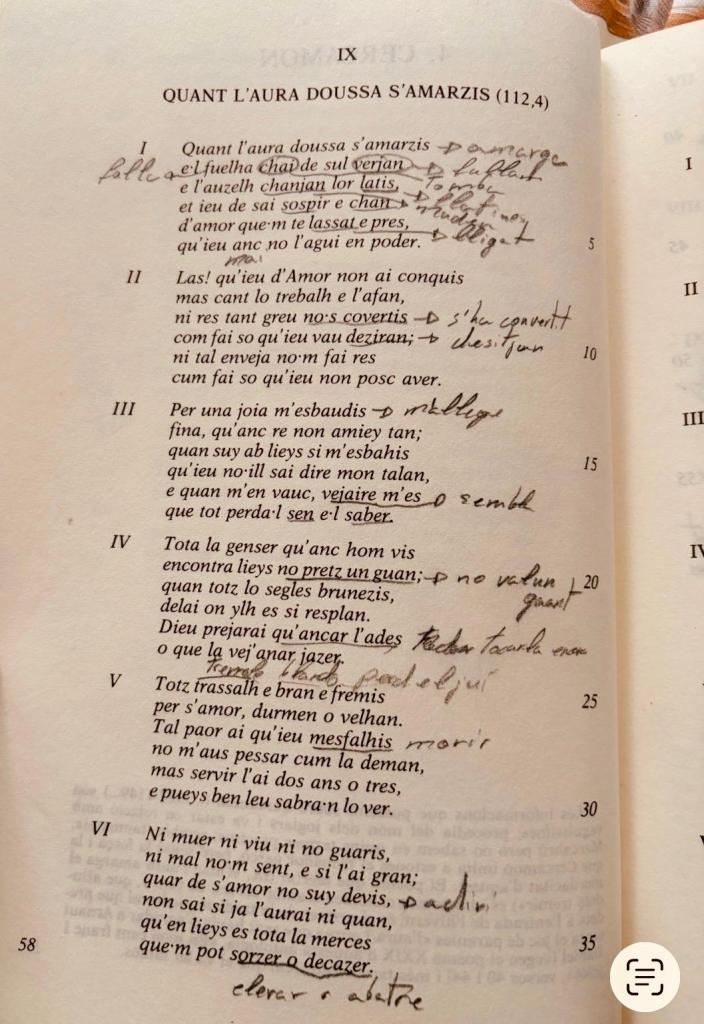 IX
QUANT L'AURA DOUSSA S'AMARZIS (112,4)
I Quant l'aura doussa s'amarzis → amarga
e·l fuelha chai de sul verjan →
e l'auzelh chanjan lor latis, tomba
et ieu de sai sospir e chan →
d'amor que·m te lassat e pres,
qu'ieu anc no l'agui en poder. → lligat 5
mai
II Las! qu'ieu d'Amor non ai conquis
mas cant lo trebalh e l'afan,
ni res tant greu no·s covertis → s'ha convertit
com fai so qu'ieu vau deziran; → desitjan 10
ni tal enveja no·m fai res
cum fai so qu'ieu non posc aver.
III Per una joia m'esbaudis → m'allegre
fina, qu'anc re non amiey tan;
quan suy ab lieys si m'esbahis 15
qu'ieu no·ill sai dire mon talan,
e quan m'en vauc, vejaire m'es → sembla
que tot perda·l sen e·l saber.
IV Tota la genser qu'anc hom vis
encontra lieys no pretz un guan; → no valun 20
guant
quan totz lo segles brunezis,
delai on ylh es si resplan.
Dieu prejarai qu'ancar l'ades tocarla encara
o que la vej'anar jazer.
tremolo perd el juí
V Totz trassalh e bran e fremis 25
per s'amor, durmen o velhan.
Tal paor ai qu'ieu mesfalhis morir
no m'aus pessar cum la deman,
mas servir l'ai dos ans o tres,
e pueys ben leu sabra·n lo ver. 30
VI Ni muer ni viu ni no guaris,
ni mal no·m sent, e si l'ai gran;
quar de s'amor no suy devis, →
non sai si ja l'aurai ni quan,
qu'en lieys es tota la merces 35
que·m pot sorzer o decazer.
elevar o abatre
58
I
II
III
IV